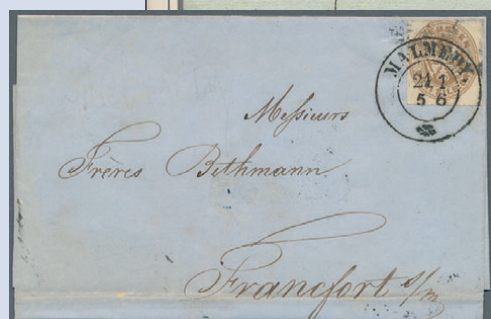 MALMEDY
21 1
5 6
Messieurs
Frères Bethmann
Francfort s/m